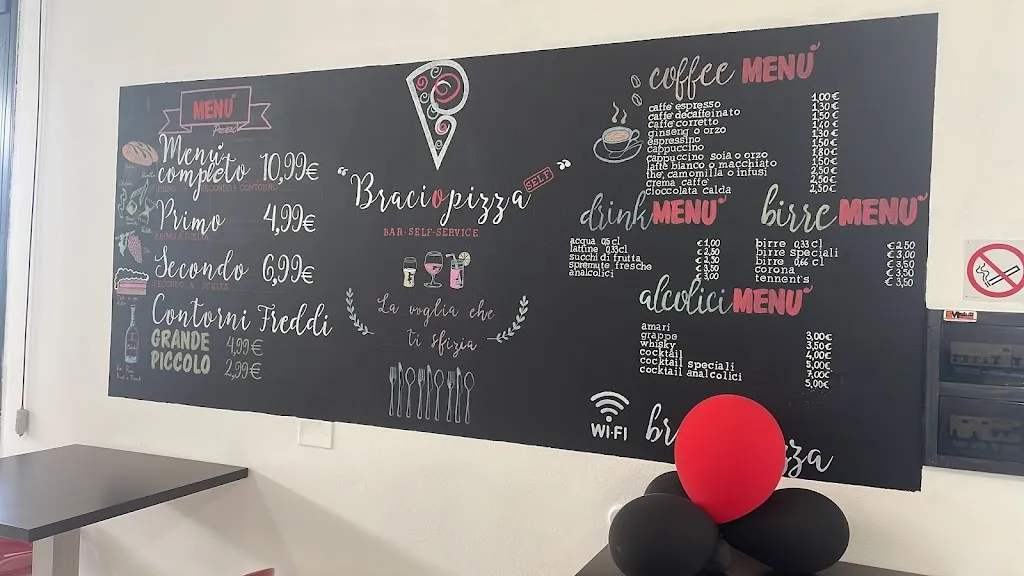 MENU
Menu completo 10,99€
PRIMO SECONDO E CONTORNO
Primo 4,99€
PRIMO A SCELTA
Secondo 6,99€
SECONDO A SCELTA
Contorni Freddi
GRANDE 4,99€
PICCOLO 2,99€
"Braciopizza"
SELF
BAR-SELF-SERVICE
La voglia che
ti sfizia
coffee MENU
caffe espresso 1,00€
caffe decaffeinato 1,30€
caffe corretto 1,50€
ginseng o orzo 1,40€
espressino 1,30€
cappuccino 1,50€
cappuccino soia o orzo 1,80€
latte bianco o macchiato 1,50€
the, camomilla o infusi 2,50€
crema caffe 2,50€
cioccolata calda 2,50€
drink MENU
acqua 0,5 cl €1,00
lattine 0,33cl €2,50
succhi di frutta €2,30
spremute fresche €3,50
analcolici €3,00
birre MENU
birre 0,33 cl €2,50
birre speciali €3,00
birre 0,66 cl €3,50
corona €3,50
tennent's €3,50
alcolici MENU
amari 3,00€
grappe 3,50€
whisky 4,00€
cocktail 5,00€
cocktail speciali 7,00€
cocktail analcolici 5,00€
WI-FI
br zza